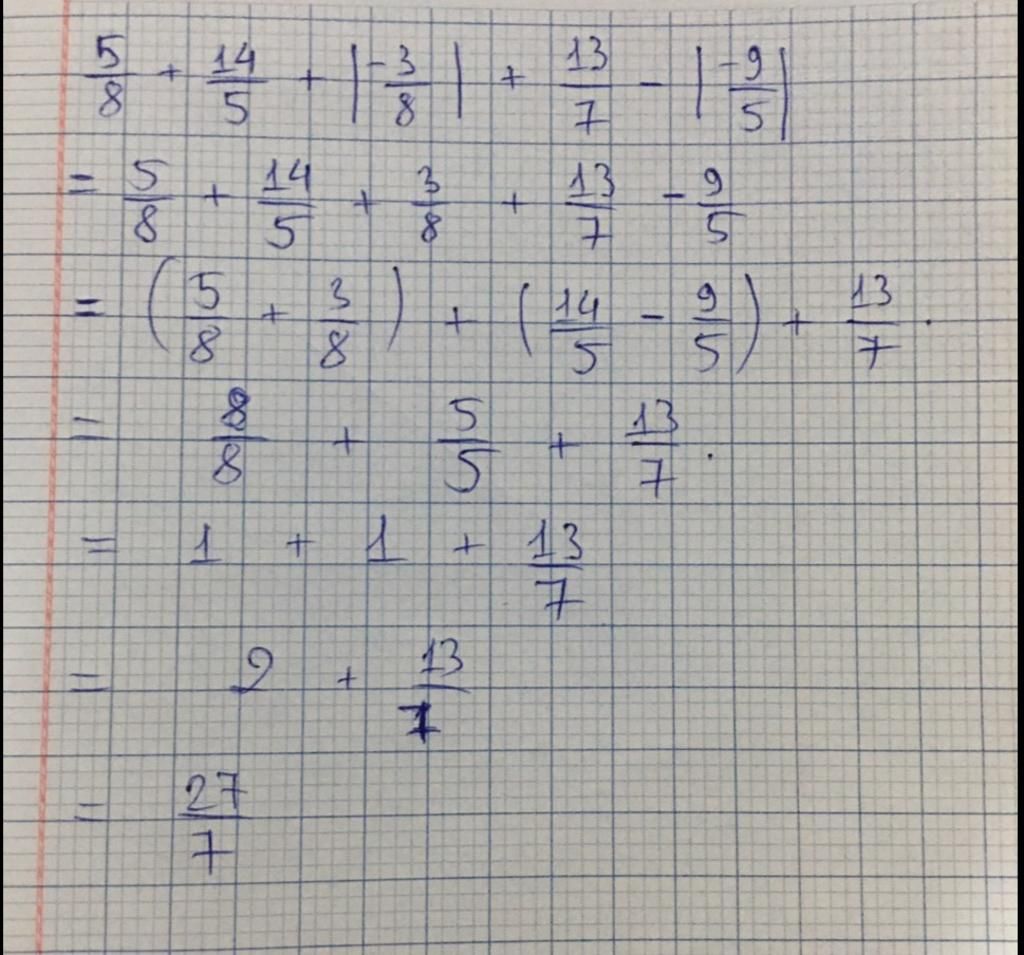 5/8 + 14/5 + |-3/8| + 13/7 - |-9/5|
= 5/8 + 14/5 + 3/8 + 13/7 - 9/5
= (5/8 + 3/8) + (14/5 - 9/5) + 13/7 .
= 8/8 + 5/5 + 13/7 .
= 1 + 1 + 13/7
= 2 + 13/7
= 27/7